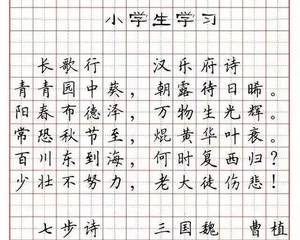 小学生学习
长歌行 汉乐府诗
青青园中葵，朝露待日晞。
阳春布德泽，万物生光辉。
常恐秋节至，焜黄华叶衰。
百川东到海，何时复西归？
少壮不努力，老大徒伤悲！
七步诗 三国魏 曹植